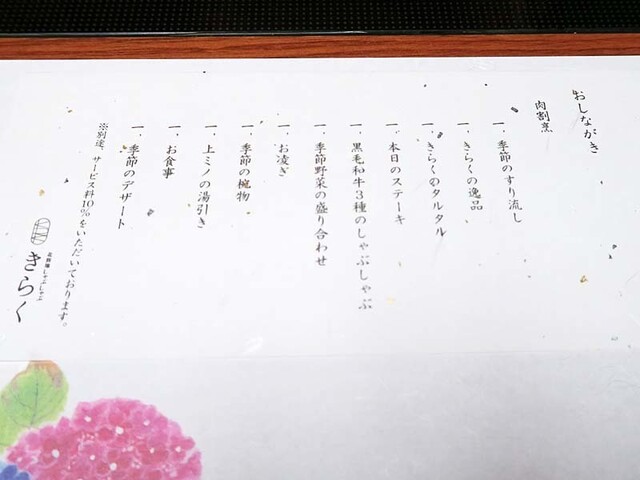 おしながき
肉割烹
一、季節のすり流し
一、きらくの逸品
一、きらくのタルタル
一、本日のステーキ
一、黒毛和牛3種のしゃぶしゃぶ
一、季節野菜の盛り合わせ
一、お凌ぎ
一、季節の椀物
一、上ミノの湯引き
一、お食事
一、季節のデザート
※別途、サービス料10%をいただいております。
しゃぶしゃぶ
きらく